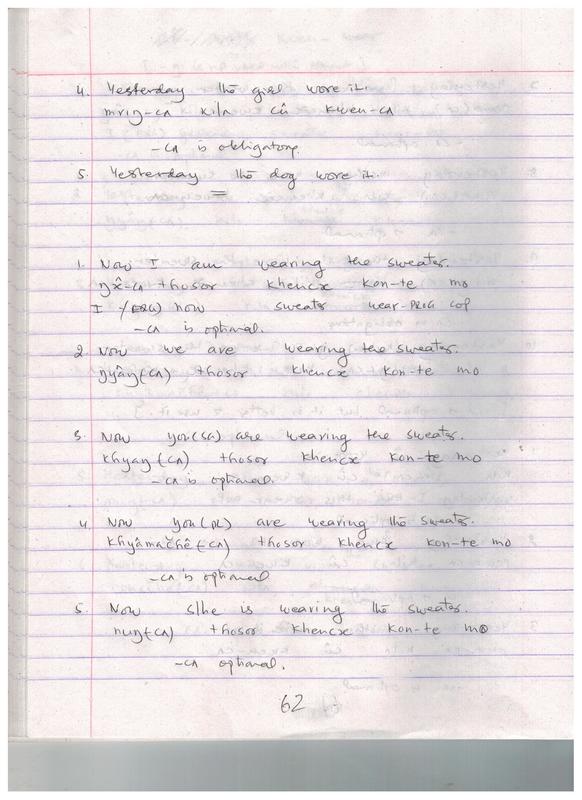 4. Yesterday the girl wore it.
mriŋ-cʌ kilʌ cû kwen-cʌ
-cʌ is obligatory.
5. Yesterday the dog wore it.
1. Now I am wearing the sweater.
ŋx̂-cʌ thosor khencx kon-te mo
I /(ERG) now sweater wear-PROG cop
-cʌ is optional.
2. Now we are wearing the sweater.
ŋyâŋ(cʌ) thosor khencx kon-te mo
3. Now you(SG) are wearing the sweater.
khyaŋ (cʌ) thosor khencx kon-te mo
-cʌ is optional.
4. Now you(PL) are wearing the sweater.
khyâmačhê(-cʌ) thosor khencx kon-te mo
-cʌ is optional
5. Now s/he is wearing the sweater.
huŋ(-cʌ) thosor khencx kon-te mo
-cʌ optional.
62